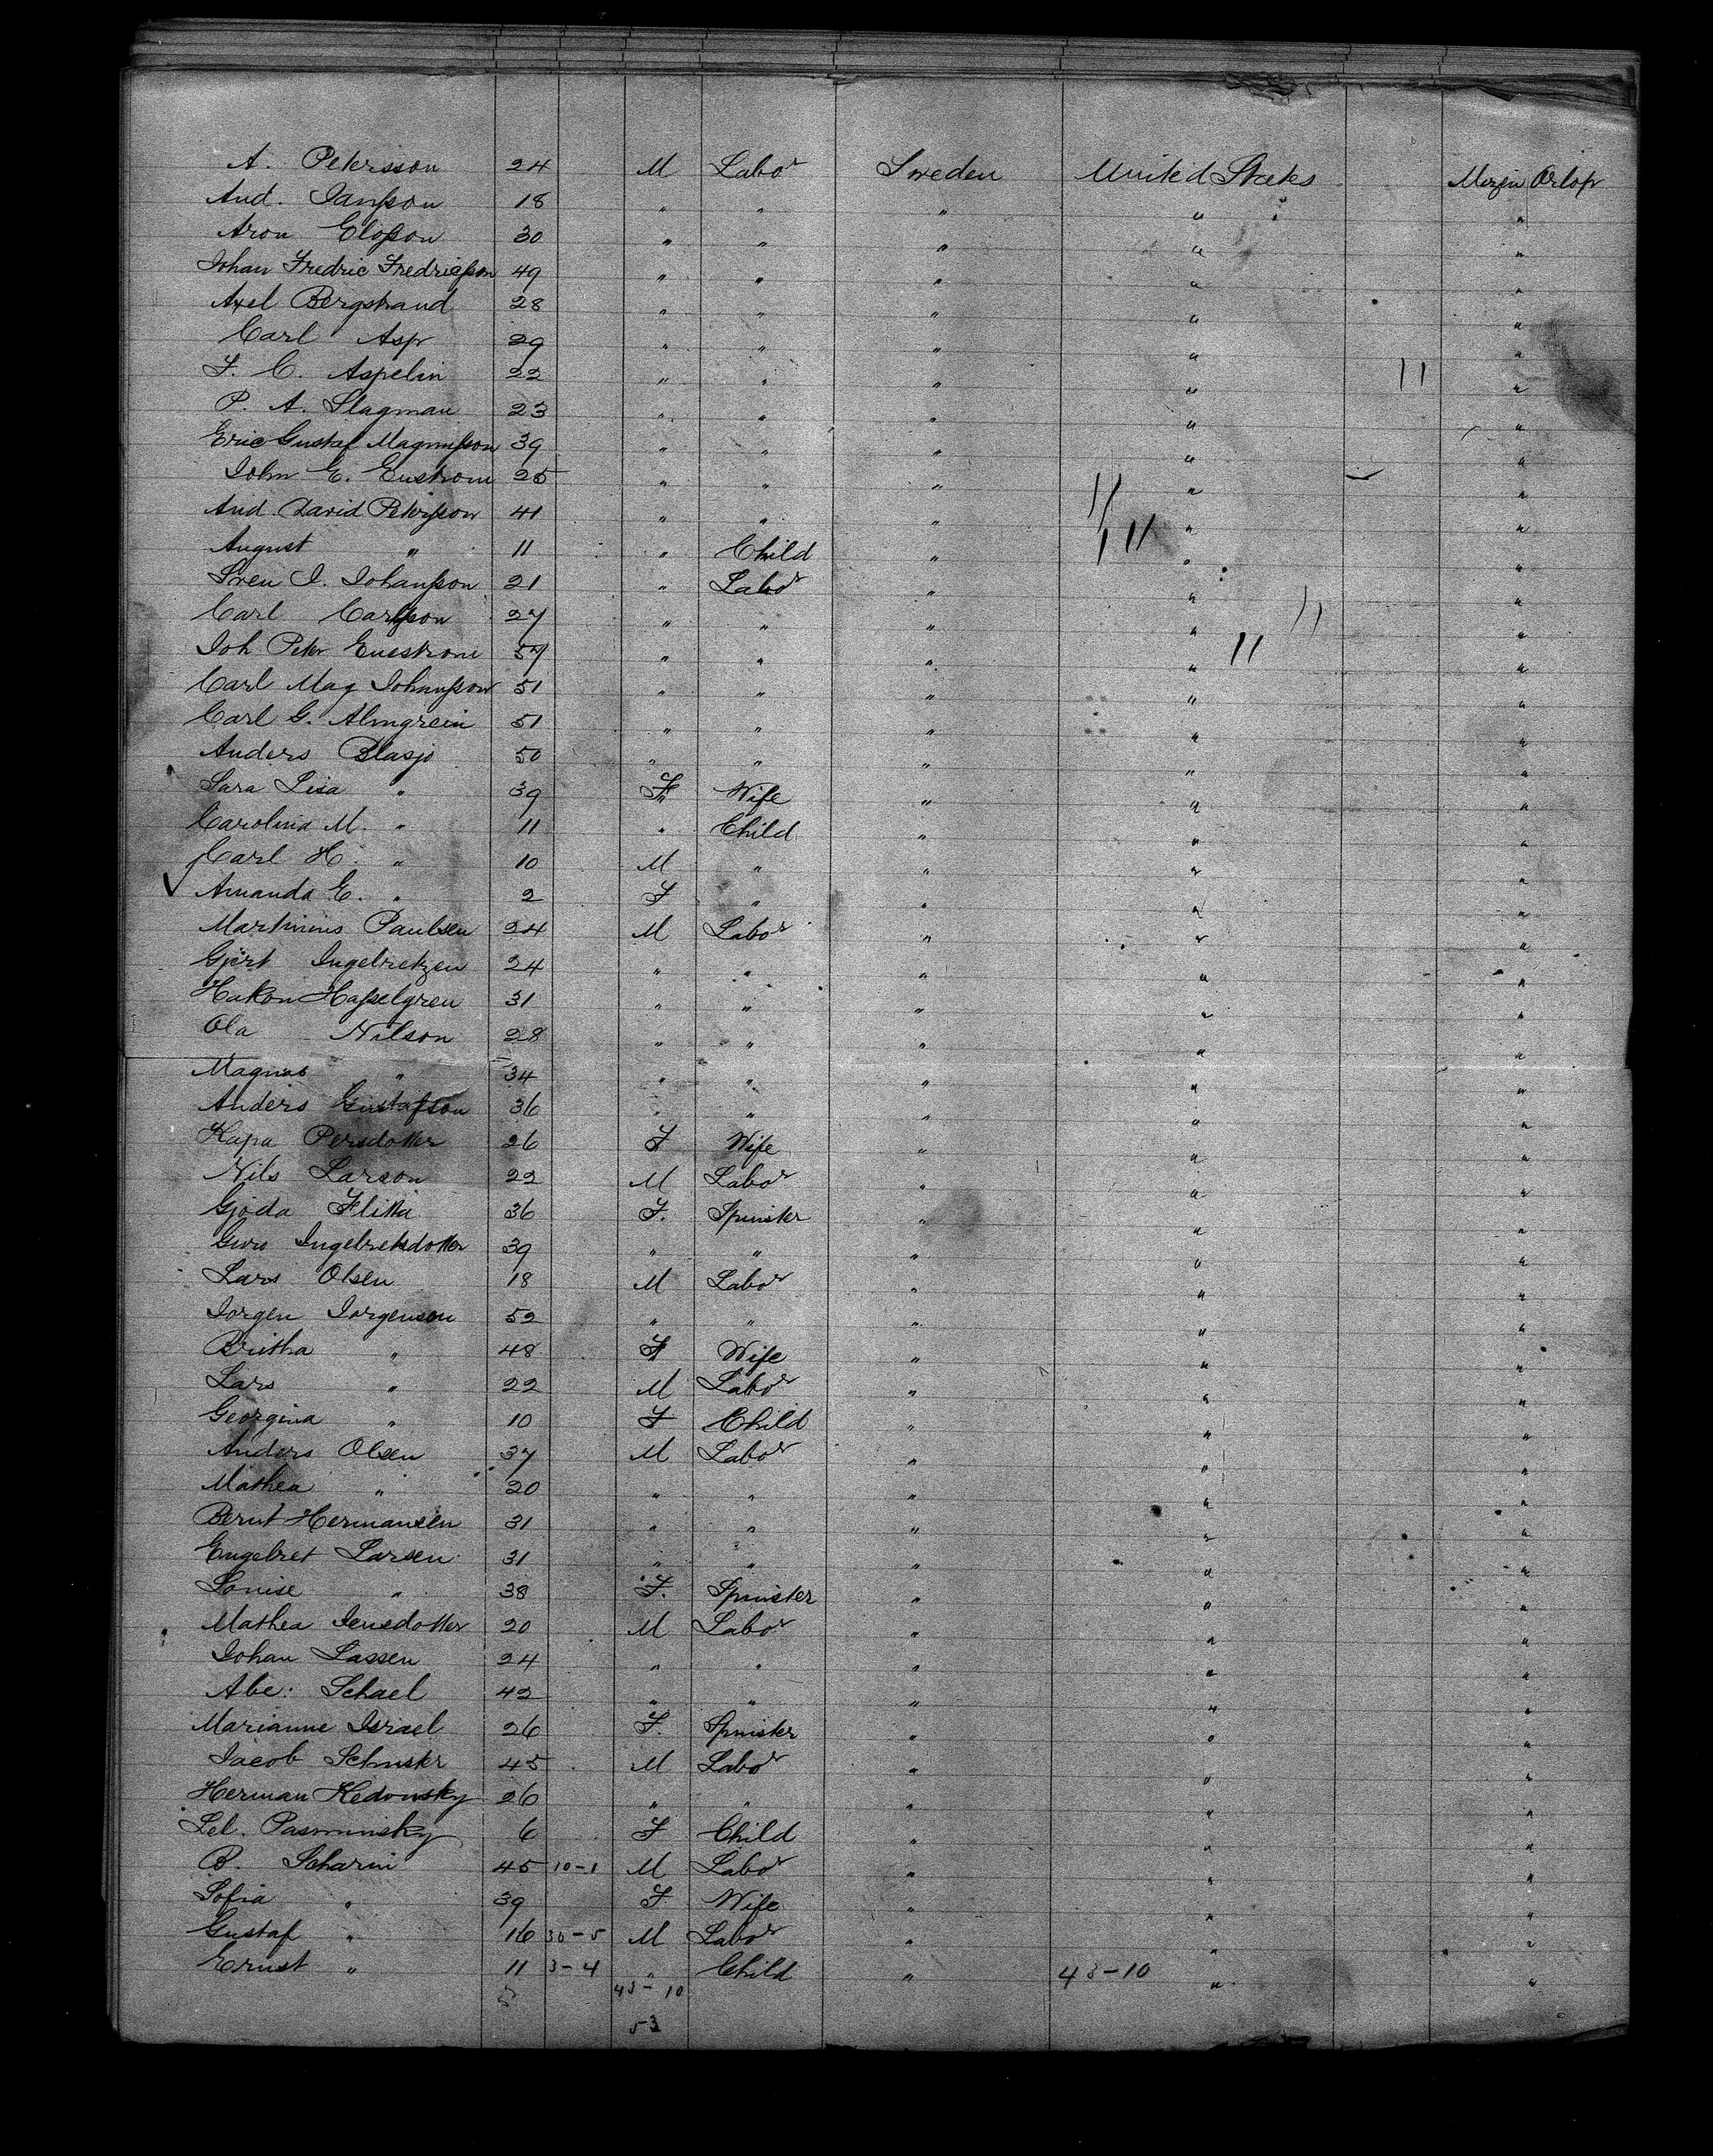 A. Petersson 24 M Labor Sweden United States Main Orlop
And. Janſson 18 " " " " "
Aron Elofson 30 " " " " "
Johan Fredric Fredricſson 49 " " " " "
Axel Bergstrand 28 " " " " "
Carl Asp 29 " " " " "
F. C. Aspelin 22 " " " " 11 "
P. A. Slagman 23 " " " " "
Eric Gustaf Magnuſson 39 " " " " "
John E. Enstrom 25 " " " " "
And. David Peterſson 41 " " " " "
August " 11 " Child " " "
Sven J. Johanſson 21 " Labor " " "
Carl Carlſson 27 " " " " "
Joh Peter Enestrom 57 " " " " 11 "
Carl Mag Johanſson 51 " " " " "
Carl G. Almgrein 51 " " " " "
Anders Blasjo 50 " " " " "
Sara Lisa " 39 F Wife " " "
Carolina M. " 11 " Child " " "
Carl H. " 10 M " " " "
Amanda E. " 2 F " " " "
Martinius Paulsen 24 M Labor " " "
Gjert Ingebretzen 24 " " " " "
Hakon Haſselgren 31 " " " " "
Ola Nilson 28 " " " " "
Magnus " 34 " " " " "
Anders Gustafson 36 " " " " "
Kapa Persdotter 26 F Wife " " "
Nils Larson 22 M Labor " " "
Gjoda Flitta 36 F. Spinster " " "
Guro Ingebretsdotter 39 " " " " "
Lars Olsen 18 M Labor " " "
Jorgen Jorgenson 52 " " " " "
Britha " 48 F Wife " " "
Lars " 22 M Labor " " "
Georgina " 10 F Child " " "
Anders Olsen 37 M Labor " " "
Mathea " 20 " " " " "
Bernt Hermansen 31 " " " " "
Engebret Larsen 31 " " " " "
Louise " 38 F. Spinster " " "
Mathea Jensdotter 20 M Labor " " "
Johan Lassen 24 " " " " "
Abe: Schael 42 " " " " "
Marianne Israel 26 F. Spinster " " "
Jacob Schuster 45 M Labor " " "
Herman Kedowsky 26 " " " " "
Lel. Pasminsky 6 F Child " " "
B. Scharin 45 10-1 M Labor " " "
Sofia " 39 F Wife " " "
Gustaf " 16 30-5 M Labor " " "
Ernst " 11 3-4 " Child " 43-10 " "
43-10
53